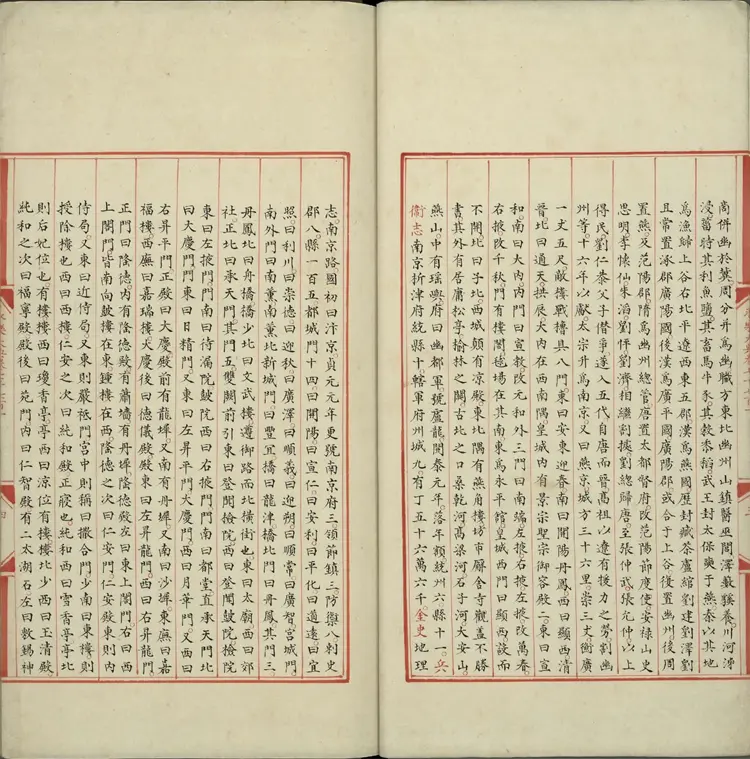 商併幽於冀周分并為幽職方東北幽州山鎮醫巫閭澤藪貕養川河泲
浸菑時其利魚鹽其畜馬牛豕其穀黍稻武王封太保奭于燕秦以其地
為漁歸上谷右北平遼西東五郡漢為燕國歷封臧荼盧綰劉建劉澤劉
旦常置涿郡廣陽國後漢為廣平國廣陽郡或合于上谷復置幽州後周
置燕及范陽郡隋為幽州總管唐置大都督府改范陽節度使安祿山史
思明李懷仙朱滔劉怦劉濟相繼割據劉總歸唐至張仲武張允伸以上
得民劉仁恭父子僭爭遂入五代自唐而晉高祖以遼有援力之勞割幽
州等十六年以獻太宗升為南京又曰燕京城方三十六里崇三丈衡廣
一丈五尺敵樓戰櫓具八門東曰安東迎春南曰開陽丹鳳西曰顯西清
晉北曰通天拱辰大內在西南隅皇城內有景宗聖宗御容殿二東曰宣
和南曰大內內門曰宣教改元和外三門曰南端左掖右掖左掖改萬春
右掖改千秋門有樓閣毬場在其南東為永平館皇城西門曰顯西設而
不開北曰子北西城顛有涼殿東北隅有燕角樓坊市廨舍寺觀蓋不勝
書其外有居庸松亭榆林之關古北之口桑乾河高梁河石子河大安山
燕山中有瑤嶼府曰幽都軍號盧龍開泰元年落額統州六縣十一兵
衛志南京析津府統縣十轄軍府州城九有丁五十六萬六千金史地理
志南京路國初曰汴京貞元元年更號南京府三領節鎮三防禦八刺史
郡八縣一百五都城門十四曰開陽曰宣仁曰安利曰平化曰通遠曰宜
照曰利川曰崇德曰迎秋曰廣澤曰順義曰迎朔曰順常曰廣智宮城門
南外門曰南薰南薰北新城門曰豐宜橋曰龍津橋北門曰丹鳳其門三
丹鳳北曰舟橋橋少北曰文武樓遵御路而北橫街也東曰太廟西曰郊
社正北曰承天門其門五雙闕前引東曰登聞檢院西曰登聞鼓院檢院
東曰左掖門門南曰待漏院鼓院西曰右掖門門南曰都堂直承天門北
曰大慶門門東曰日精門又東曰左昇平門大慶門西曰月華門又西曰
右昇平門正殿曰大慶殿前有龍墀又南有丹墀又南曰沙墀東廡曰嘉
福樓西廡曰嘉瑞樓大慶後曰德儀殿殿東曰左昇龍門西曰右昇龍門
正門曰隆德內有隆德殿有蕭墻有丹墀隆德殿左曰東上閤門右曰西
上閤門皆南向鼓樓在東鐘樓在西隆德之次曰仁安門仁安殿東則內
侍局又東曰近侍局又東則嚴祗門宮中則稱曰撒合門少南曰東樓則
授除樓也西曰西樓仁安之次曰純和殿正寢也純和西曰雪香亭亭北
則后妃位也有樓樓西曰瓊香亭亭西曰涼位有樓樓北少西曰玉清殿
純和之次曰福寧殿殿後曰苑門內曰仁智殿有二太湖石左曰敷錫神